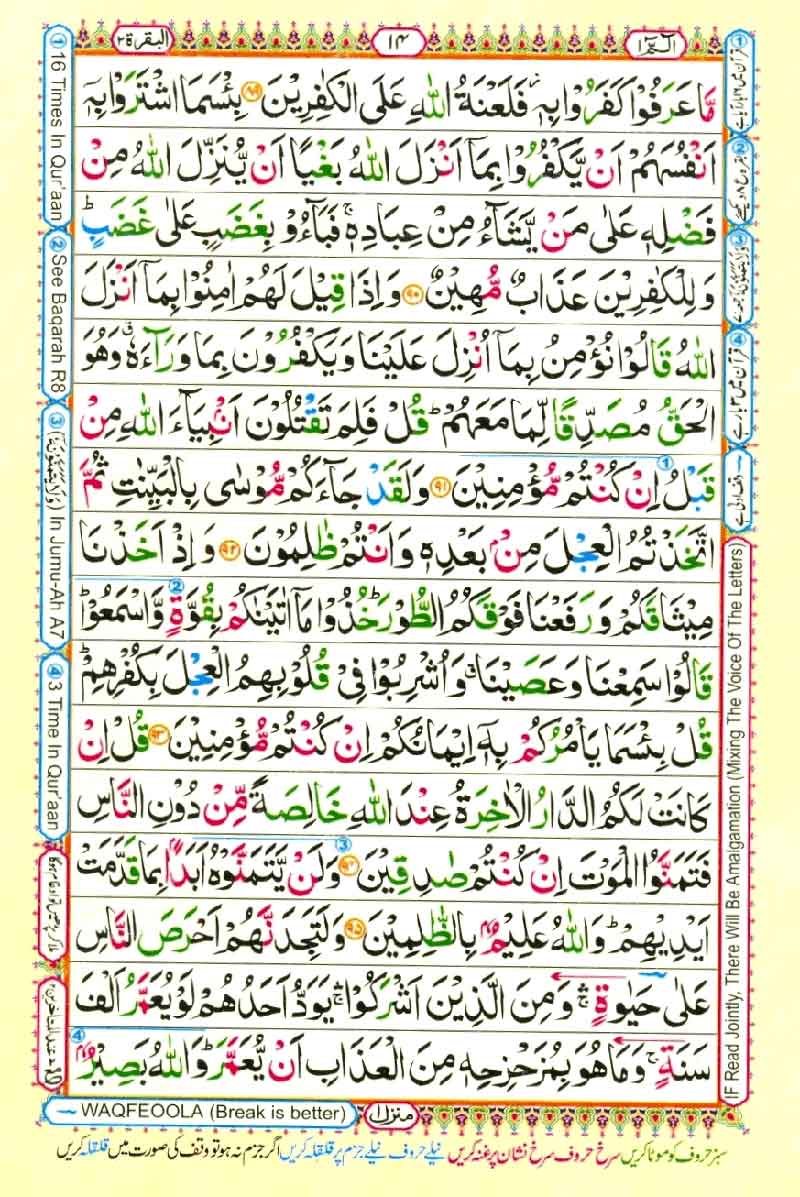 البقرة ٢
١٤
الٓمّٓ ١
مَّا عَرَفُوْا كَفَرُوْا بِهٖ ؗ فَلَعْنَةُ اللّٰهِ عَلَى الْكٰفِرِيْنَ ۝۸۹ بِئْسَمَا اشْتَرَوْا بِهٖۤ
اَنْفُسَهُمْ اَنْ يَّكْفُرُوْا بِمَاۤ اَنْزَلَ اللّٰهُ بَغْيًا اَنْ يُّنَزِّلَ اللّٰهُ مِنْ
فَضْلِهٖ عَلٰى مَنْ يَّشَآءُ مِنْ عِبَادِهٖ ۚ فَبَآءُوْ بِغَضَبٍ عَلٰى غَضَبٍ ؕ
وَلِلْكٰفِرِيْنَ عَذَابٌ مُّهِيْنٌ ۝۹۰ وَاِذَا قِيْلَ لَهُمْ اٰمِنُوْا بِمَاۤ اَنْزَلَ
اللّٰهُ قَالُوْا نُؤْمِنُ بِمَاۤ اُنْزِلَ عَلَيْنَا وَيَكْفُرُوْنَ بِمَا وَرَآءَهٗ ۗ وَهُوَ
الْحَقُّ مُصَدِّقًا لِّمَا مَعَهُمْ ؕ قُلْ فَلِمَ تَقْتُلُوْنَ اَنْۢبِيَآءَ اللّٰهِ مِنْ
قَبْلُ اِنْ كُنْتُمْ مُّؤْمِنِيْنَ ۝۹۱ وَلَقَدْ جَآءَكُمْ مُّوْسٰى بِالْبَيِّنٰتِ ثُمَّ
اتَّخَذْتُمُ الْعِجْلَ مِنْۢ بَعْدِهٖ وَاَنْتُمْ ظٰلِمُوْنَ ۝۹۲ وَاِذْ اَخَذْنَا
مِيْثَاقَكُمْ وَرَفَعْنَا فَوْقَكُمُ الطُّوْرَ ؕ خُذُوْا مَاۤ اٰتَيْنٰكُمْ بِقُوَّةٍ وَّاسْمَعُوْا ؕ
قَالُوْا سَمِعْنَا وَعَصَيْنَا ۗ وَاُشْرِبُوْا فِيْ قُلُوْبِهِمُ الْعِجْلَ بِكُفْرِهِمْ ؕ
قُلْ بِئْسَمَا يَاْمُرُكُمْ بِهٖۤ اِيْمَانُكُمْ اِنْ كُنْتُمْ مُّؤْمِنِيْنَ ۝۹۳ قُلْ اِنْ
كَانَتْ لَكُمُ الدَّارُ الْاٰخِرَةُ عِنْدَ اللّٰهِ خَالِصَةً مِّنْ دُوْنِ النَّاسِ
فَتَمَنَّوُا الْمَوْتَ اِنْ كُنْتُمْ صٰدِقِيْنَ ۝۹۴ وَلَنْ يَّتَمَنَّوْهُ اَبَدًۢا بِمَا قَدَّمَتْ
اَيْدِيْهِمْ ؕ وَاللّٰهُ عَلِيْمٌۢ بِالظّٰلِمِيْنَ ۝۹۵ وَلَتَجِدَنَّهُمْ اَحْرَصَ النَّاسِ
عَلٰى حَيٰوةٍ ۛۚ وَمِنَ الَّذِيْنَ اَشْرَكُوْا ۛۚ يَوَدُّ اَحَدُهُمْ لَوْ يُعَمَّرُ اَلْفَ
سَنَةٍ ۚ وَمَا هُوَ بِمُزَحْزِحِهٖ مِنَ الْعَذَابِ اَنْ يُّعَمَّرَ ؕ وَاللّٰهُ بَصِيْرٌۢ
① 16 Times In Qur'aan
② See Baqarah R8
③ (وَلَا يَتَمَنَّوْنَهٗ) In Jumu-Ah A7
④ 3 Time In Qur'aan
IF Read Jointly, There Will Be Amalgamation (Mixing The Voice Of The Letters)
WAQFEOOLA (Break is better)
منزل ١
سبز حروف کو موٹا کریں سرخ حروف سرخ نشان پر غنہ کریں نیلے حروف نیلے جزم پر قلقلہ کریں اگر جزم نہ ہو تو وقف کی صورت میں قلقلہ کریں